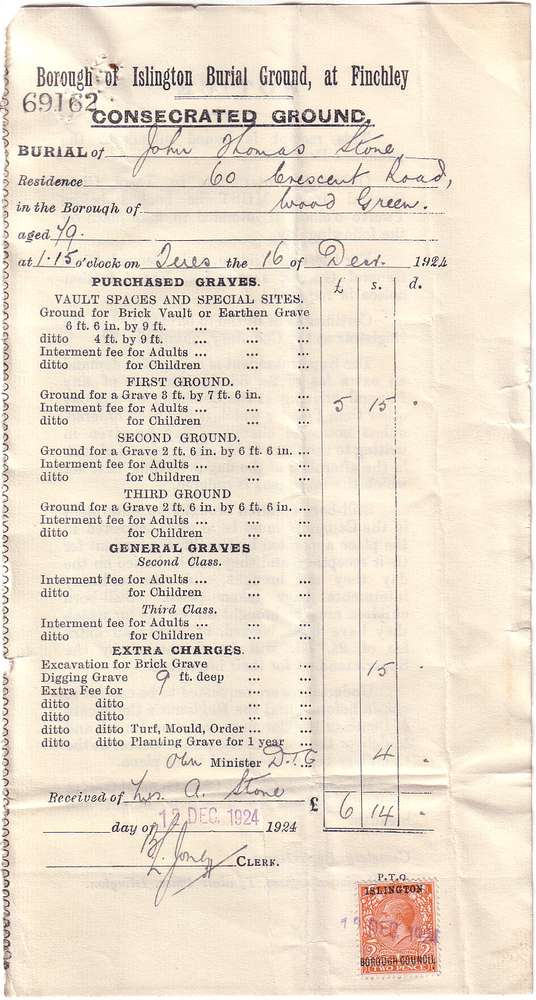 Borough of Islington Burial Ground, at Finchley
69162
CONSECRATED GROUND.
BURIAL of John Thomas Stone
Residence 60 Crescent Road,
in the Borough of Wood Green.
aged 79.
at 1.15 o'clock on Tues the 16 of Decr. 1924
PURCHASED GRAVES. £ s. d.
VAULT SPACES AND SPECIAL SITES.
Ground for Brick Vault or Earthen Grave
6 ft. 6 in. by 9 ft. ... ... ...
ditto 4 ft. by 9 ft. ... ... ...
Interment fee for Adults ... ... ...
ditto for Children ... ...
FIRST GROUND.
Ground for a Grave 3 ft. by 7 ft. 6 in. ...
Interment fee for Adults ... ... ... 5 15 .
ditto for Children ... ...
SECOND GROUND.
Ground for a Grave 2 ft. 6 in. by 6 ft. 6 in. ...
Interment fee for Adults ... ... ...
ditto for Children ... ...
THIRD GROUND
Ground for a Grave 2 ft. 6 in. by 6 ft. 6 in. ...
Interment fee for Adults ... ... ...
ditto for Children ... ...
GENERAL GRAVES
Second Class.
Interment fee for Adults ... ... ...
ditto for Children ... ...
Third Class.
Interment fee for Adults ... ... ...
ditto for Children ... ...
EXTRA CHARGES.
Excavation for Brick Grave ... ...
Digging Grave 9 ft. deep ... ... 15 .
Extra Fee for ... ...
ditto ditto ... ...
ditto ditto ... ...
ditto ditto Turf, Mould, Order ... ...
ditto ditto Planting Grave for 1 year ...
Own Minister D.T.G ... 4 .
Received of Mrs. A. Stone £ 6 14 .
day of 12 DEC. 1924 1924
Jones CLERK.
P.T.O.
ISLINGTON
DEC 1924
BOROUGH COUNCIL
TWO PENCE